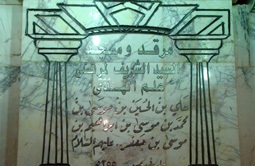 مرقد ومسجد
السيد الشريف المرتضى
علم الهدى
علي بن الحسين بن موسى بن
محمد بن موسى بن ابراهيم بن
موسى بن جعفر عليهم السلام